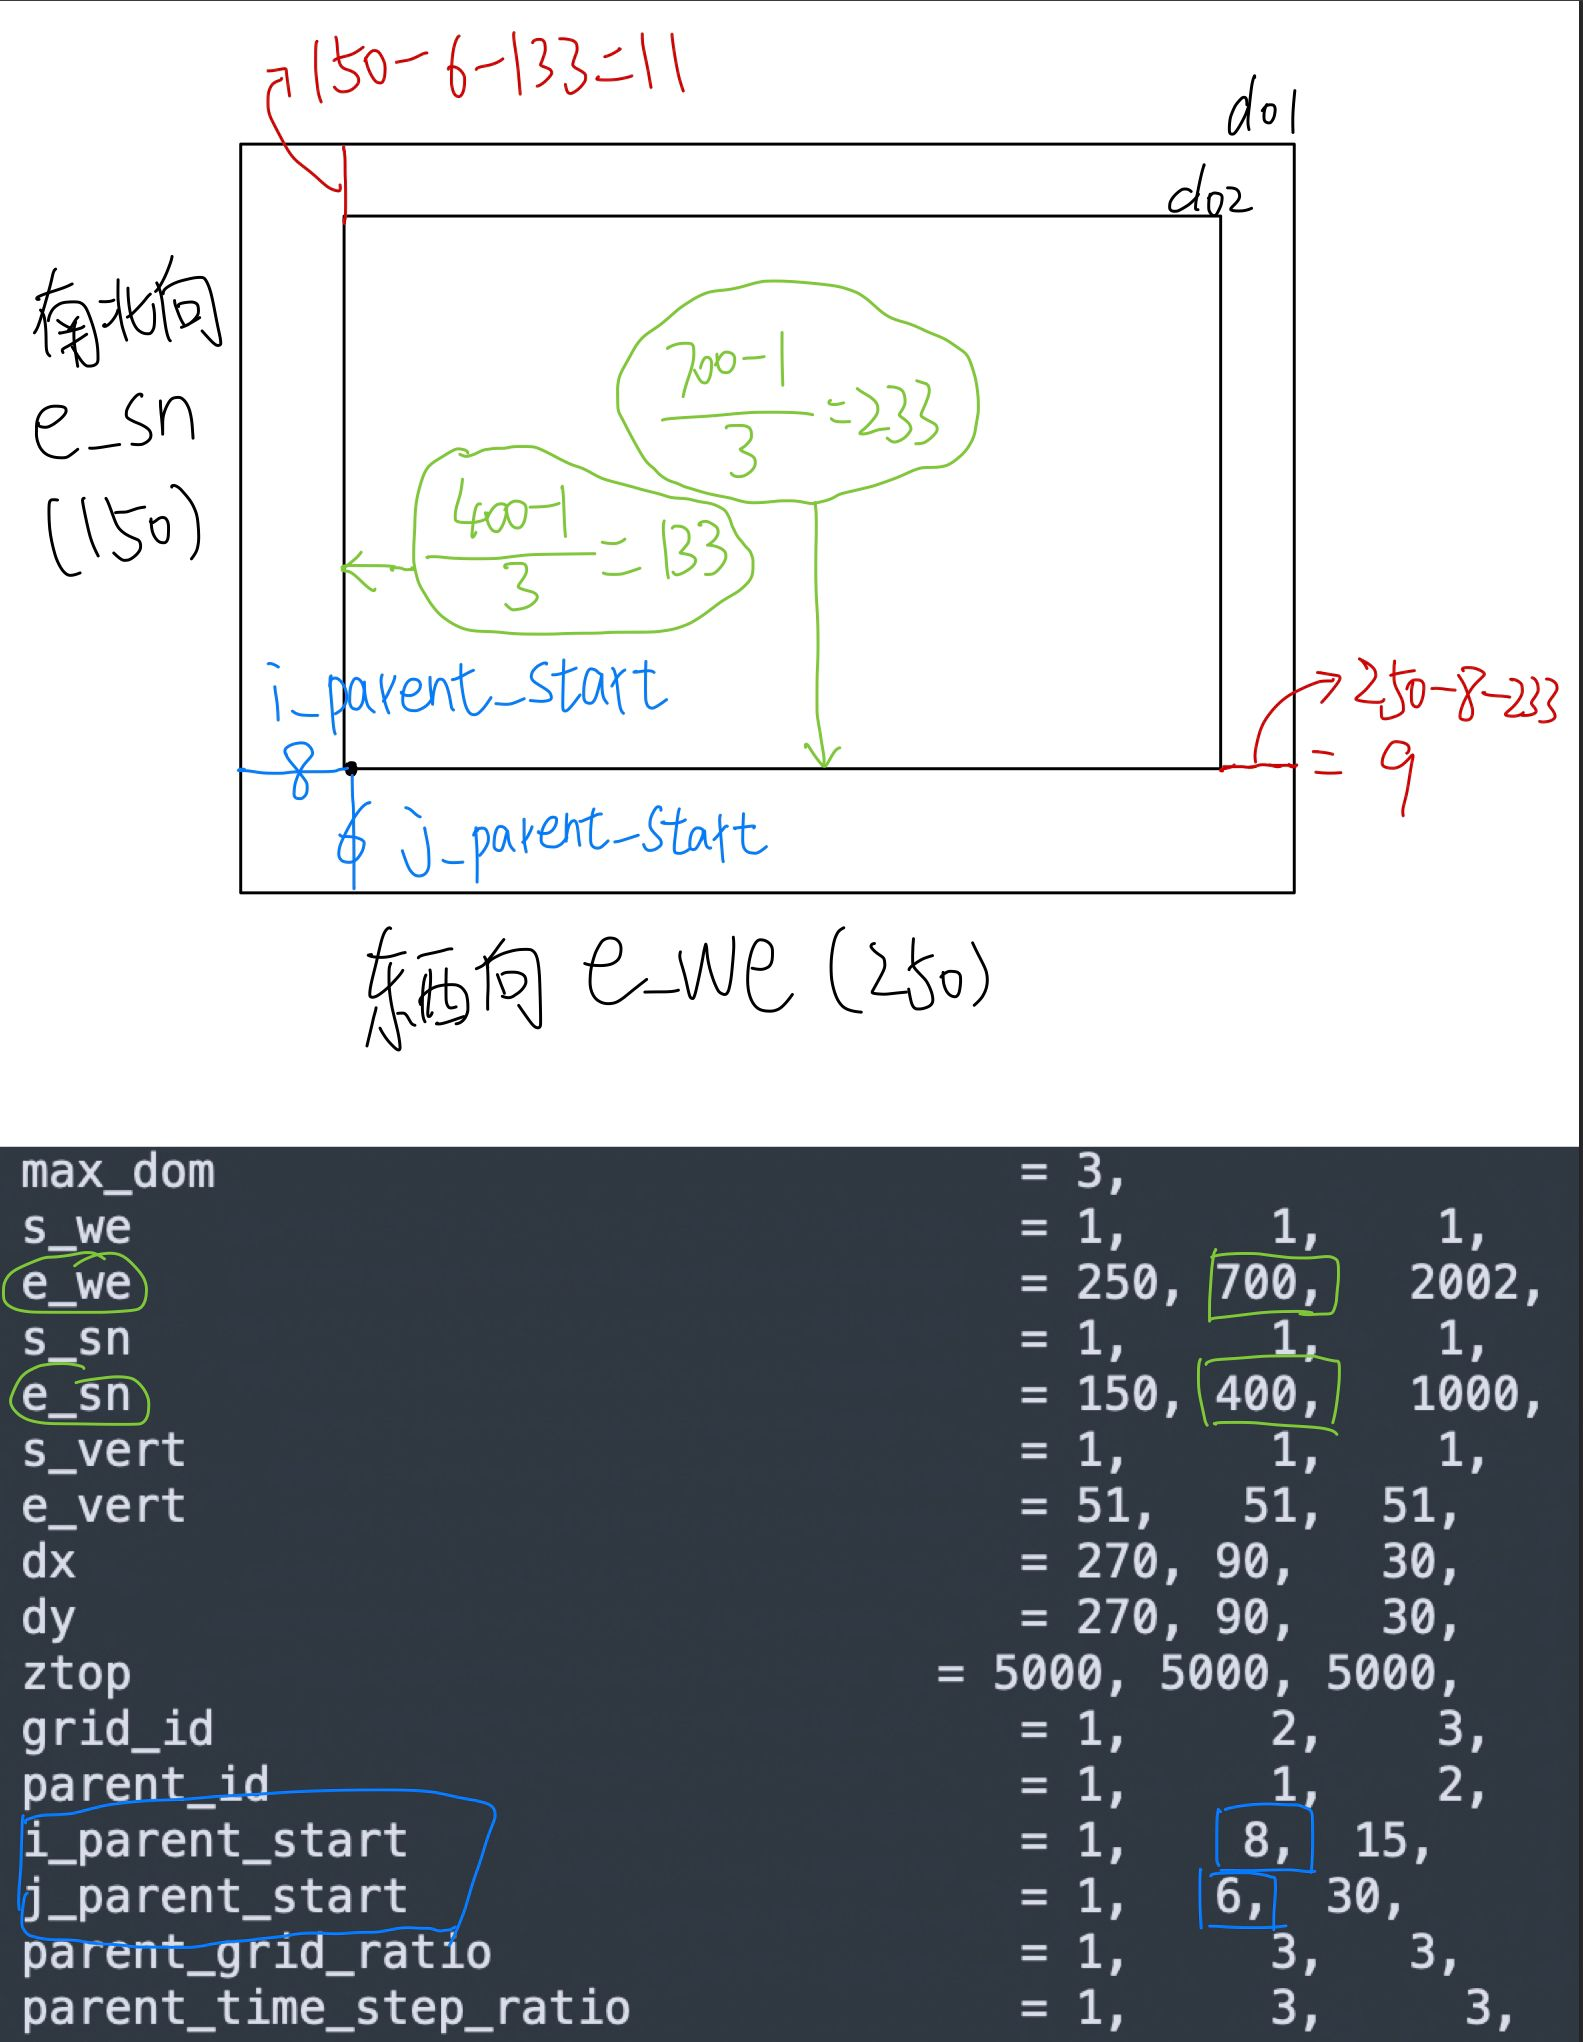 150-6-133=11
d01
d02
南北向
e_sn
(150)
700-1
3
=233
400-1
3
=133
i_parent_start
8
6 j_parent_start
250-8-233
= 9
东西向 e_we (250)
max_dom = 3,
s_we = 1, 1, 1,
e_we = 250, 700, 2002,
s_sn = 1, 1, 1,
e_sn = 150, 400, 1000,
s_vert = 1, 1, 1,
e_vert = 51, 51, 51,
dx = 270, 90, 30,
dy = 270, 90, 30,
ztop = 5000, 5000, 5000,
grid_id = 1, 2, 3,
parent_id = 1, 1, 2,
i_parent_start = 1, 8, 15,
j_parent_start = 1, 6, 30,
parent_grid_ratio = 1, 3, 3,
parent_time_step_ratio = 1, 3, 3,